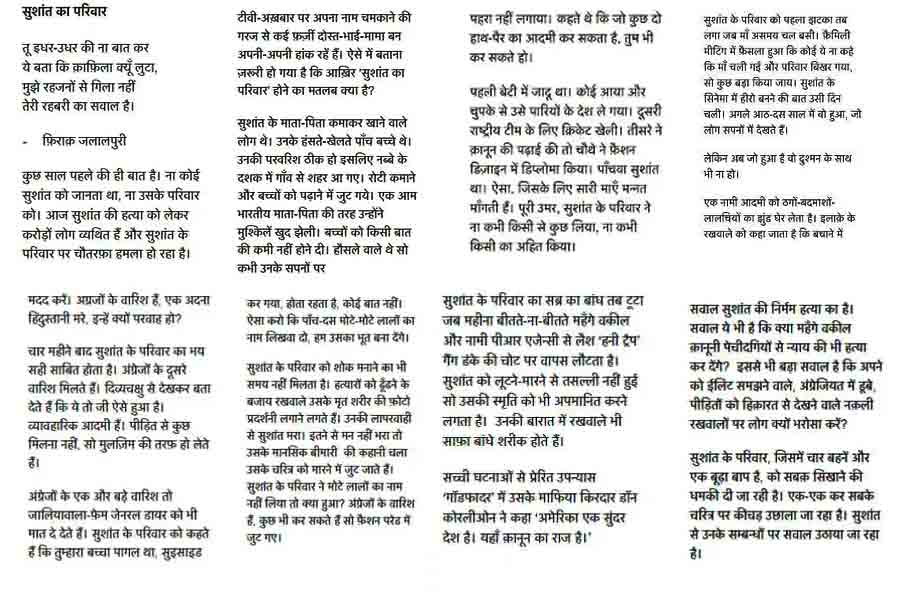 सुशांत का परिवार
तू इधर-उधर की ना बात कर
ये बता कि क़ाफ़िला क्यूँ लुटा,
मुझे रहजनों से गिला नहीं
तेरी रहबरी का सवाल है।
- फ़िराक़ जलालपुरी
कुछ साल पहले की ही बात है। ना कोई
सुशांत को जानता था, ना उसके परिवार
को। आज सुशांत की हत्या को लेकर
करोड़ों लोग व्यथित हैं और सुशांत के
परिवार पर चौतरफ़ा हमला हो रहा है।
टीवी-अख़बार पर अपना नाम चमकाने की
गरज से कई फ़र्ज़ी दोस्त-भाई-मामा बन
अपनी-अपनी हांक रहे हैं। ऐसे में बताना
ज़रूरी हो गया है कि आख़िर 'सुशांत का
परिवार' होने का मतलब क्या है?
सुशांत के माता-पिता कमाकर खाने वाले
लोग थे। उनके हंसते-खेलते पाँच बच्चे थे।
उनकी परवरिश ठीक हो इसलिए नब्बे के
दशक में गाँव से शहर आ गए। रोटी कमाने
और बच्चों को पढ़ाने में जुट गये। एक आम
भारतीय माता-पिता की तरह उन्होंने
मुश्किलें खुद झेली। बच्चों को किसी बात
की कमी नहीं होने दी। हौसले वाले थे सो
कभी उनके सपनों पर
पहरा नहीं लगाया। कहते थे कि जो कुछ दो
हाथ-पैर का आदमी कर सकता है, तुम भी
कर सकते हो।
पहली बेटी में जादू था। कोई आया और
चुपके से उसे परियों के देश ले गया। दूसरी
राष्ट्रीय टीम के लिए क्रिकेट खेली। तीसरे ने
क़ानून की पढ़ाई की तो चौथे ने फ़ैशन
डिज़ाइन में डिप्लोमा किया। पाँचवा सुशांत
था। ऐसा, जिसके लिए सारी माएँ मन्नत
माँगती हैं। पूरी उमर, सुशांत के परिवार ने
ना कभी किसी से कुछ लिया, ना कभी
किसी का अहित किया।
सुशांत के परिवार को पहला झटका तब
लगा जब माँ असमय चल बसी। फ़ैमिली
मीटिंग में फ़ैसला हुआ कि कोई ये ना कहे
कि माँ चली गई और परिवार बिखर गया,
सो कुछ बड़ा किया जाय। सुशांत के
सिनेमा में हीरो बनने की बात उसी दिन
चली। अगले आठ-दस साल में वो हुआ, जो
लोग सपनों में देखते हैं।
लेकिन अब जो हुआ है वो दुश्मन के साथ
भी ना हो।
एक नामी आदमी को ठगों-बदमाशों-
लालचियों का झुंड घेर लेता है। इलाक़े के
रखवाले को कहा जाता है कि बचाने में
मदद करें। अंग्रजों के वारिश हैं, एक अदना
हिंदुस्तानी मरे, इन्हें क्यों परवाह हो?
चार महीने बाद सुशांत के परिवार का भय
सही साबित होता है। अंग्रेजों के दूसरे
वारिश मिलते हैं। दिव्यचक्षु से देखकर बता
देते हैं कि ये तो जी ऐसे हुआ है।
व्यावहारिक आदमी हैं। पीड़ित से कुछ
मिलना नहीं, सो मुलज़िम की तरफ़ हो लेते
हैं।
अंग्रेजों के एक और बड़े वारिश तो
जालियावाला-फ़ेम जेनरल डायर को भी
मात दे देते हैं। सुशांत के परिवार को कहते
हैं कि तुम्हारा बच्चा पागल था, सुइसाइड
कर गया, होता रहता है, कोई बात नहीं।
ऐसा करो कि पाँच-दस मोटे-मोटे लालों का
नाम लिखवा दो, हम उसका भूत बना देंगे।
सुशांत के परिवार को शोक मनाने का भी
समय नहीं मिलता है। हत्यारों को ढूँढने के
बजाय रखवाले उसके मृत शरीर की फ़ोटो
प्रदर्शनी लगाने लगते हैं। उनकी लापरवाही
से सुशांत मरा। इतने से मन नहीं भरा तो
उसके मानसिक बीमारी की कहानी चला
उसके चरित्र को मारने में जुट जाते हैं।
सुशांत के परिवार ने मोटे लालों का नाम
नहीं लिया तो क्या हुआ? अंग्रेजों के वारिश
हैं, कुछ भी कर सकते हैं सो फ़ैशन परेड में
जुट गए।
सुशांत के परिवार का सब्र का बांध तब टूटा
जब महीना बीतते-ना-बीतते महँगे वकील
और नामी पीआर एजेन्सी से लैश 'हनी ट्रैप'
गैंग डंके की चोट पर वापस लौटता है।
सुशांत को लूटने-मारने से तसल्ली नहीं हुई
सो उसकी स्मृति को भी अपमानित करने
लगता है। उनकी बारात में रखवाले भी
साफ़ा बांधे शरीक होते हैं।
सच्ची घटनाओं से प्रेरित उपन्यास
'गॉडफादर' में उसके माफिया किरदार डॉन
कोरलीओन ने कहा 'अमेरिका एक सुंदर
देश है। यहाँ क़ानून का राज है।'
सवाल सुशांत की निर्मम हत्या का है।
सवाल ये भी है कि क्या महँगे वकील
क़ानूनी पेचीदगियों से न्याय की भी हत्या
कर देंगे? इससे भी बड़ा सवाल है कि अपने
को ईलिट समझने वाले, अंग्रेजियत में डूबे,
पीड़ितों को हिक़ारत से देखने वाले नक़ली
रखवालों पर लोग क्यों भरोसा करें?
सुशांत के परिवार, जिसमें चार बहनें और
एक बूढ़ा बाप है, को सबक़ सिखाने की
धमकी दी जा रही है। एक-एक कर सबके
चरित्र पर कीचड़ उछाला जा रहा है। सुशांत
से उनके सम्बन्धों पर सवाल उठाया जा रहा
है।